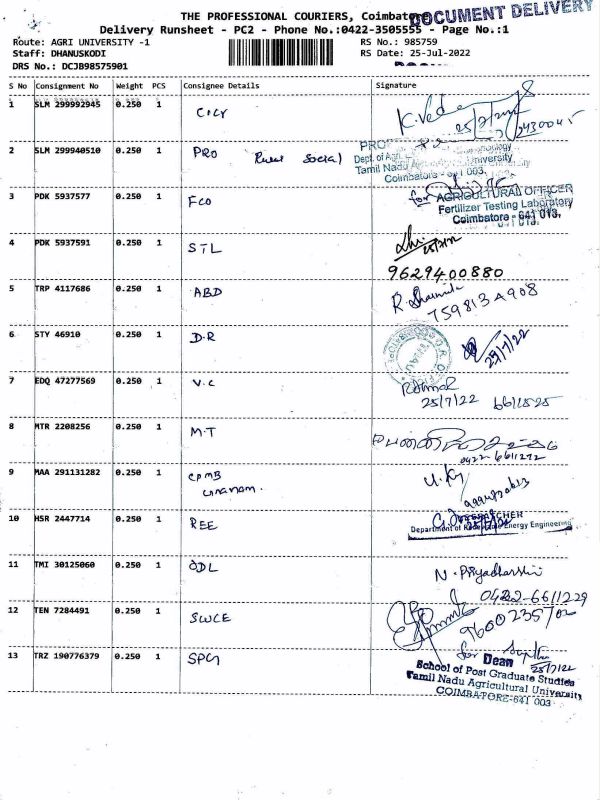 THE PROFESSIONAL COURIERS, Coimbatore
DOCUMENT DELIVERY
Delivery Runsheet - PC2 - Phone No.:0422-3505555 - Page No.:1
Route: AGRI UNIVERSITY -1 RS No.: 985759
Staff: DHANUSKODI RS Date: 25-Jul-2022
DRS No.: DCJB98575901
S No Consignment No Weight PCS Consignee Details Signature
1 SLM 299992945 0.250 1 K.Veda
25/7/2022
2 SLM 299940510 0.250 1 PRO Rural Social
Tamil Nadu Agricultural University
Coimbatore - 641 003.
3 PDK 5937577 0.250 1 FCO for AGRICULTURAL OFFICER
Fertilizer Testing Laboratory
Coimbatore - 641 013.
4 PDK 5937591 0.250 1 STL 25/7/22
9629400880
5 TRP 4117686 0.250 1 ABD R. Sharmila
7598134908
6 STY 46910 0.250 1 D.R 25/7/22
7 EDQ 47277569 0.250 1 V.C
25/7/22 6611525
8 MTR 2208256 0.250 1 M.T
0422-6611272
9 MAA 291131282 0.250 1 CPMB
10 HSR 2447714 0.250 1 REE
Department of Renewable Energy Engineering
11 TMI 30125060 0.250 1 ODL N. Priyadharshini
0422-6611229
12 TEN 7284491 0.250 1 SWCE
13 TRZ 190776379 0.250 1 SPG for
Dean 25/7/22
School of Post Graduate Studies
Tamil Nadu Agricultural University
COIMBATORE-641 003